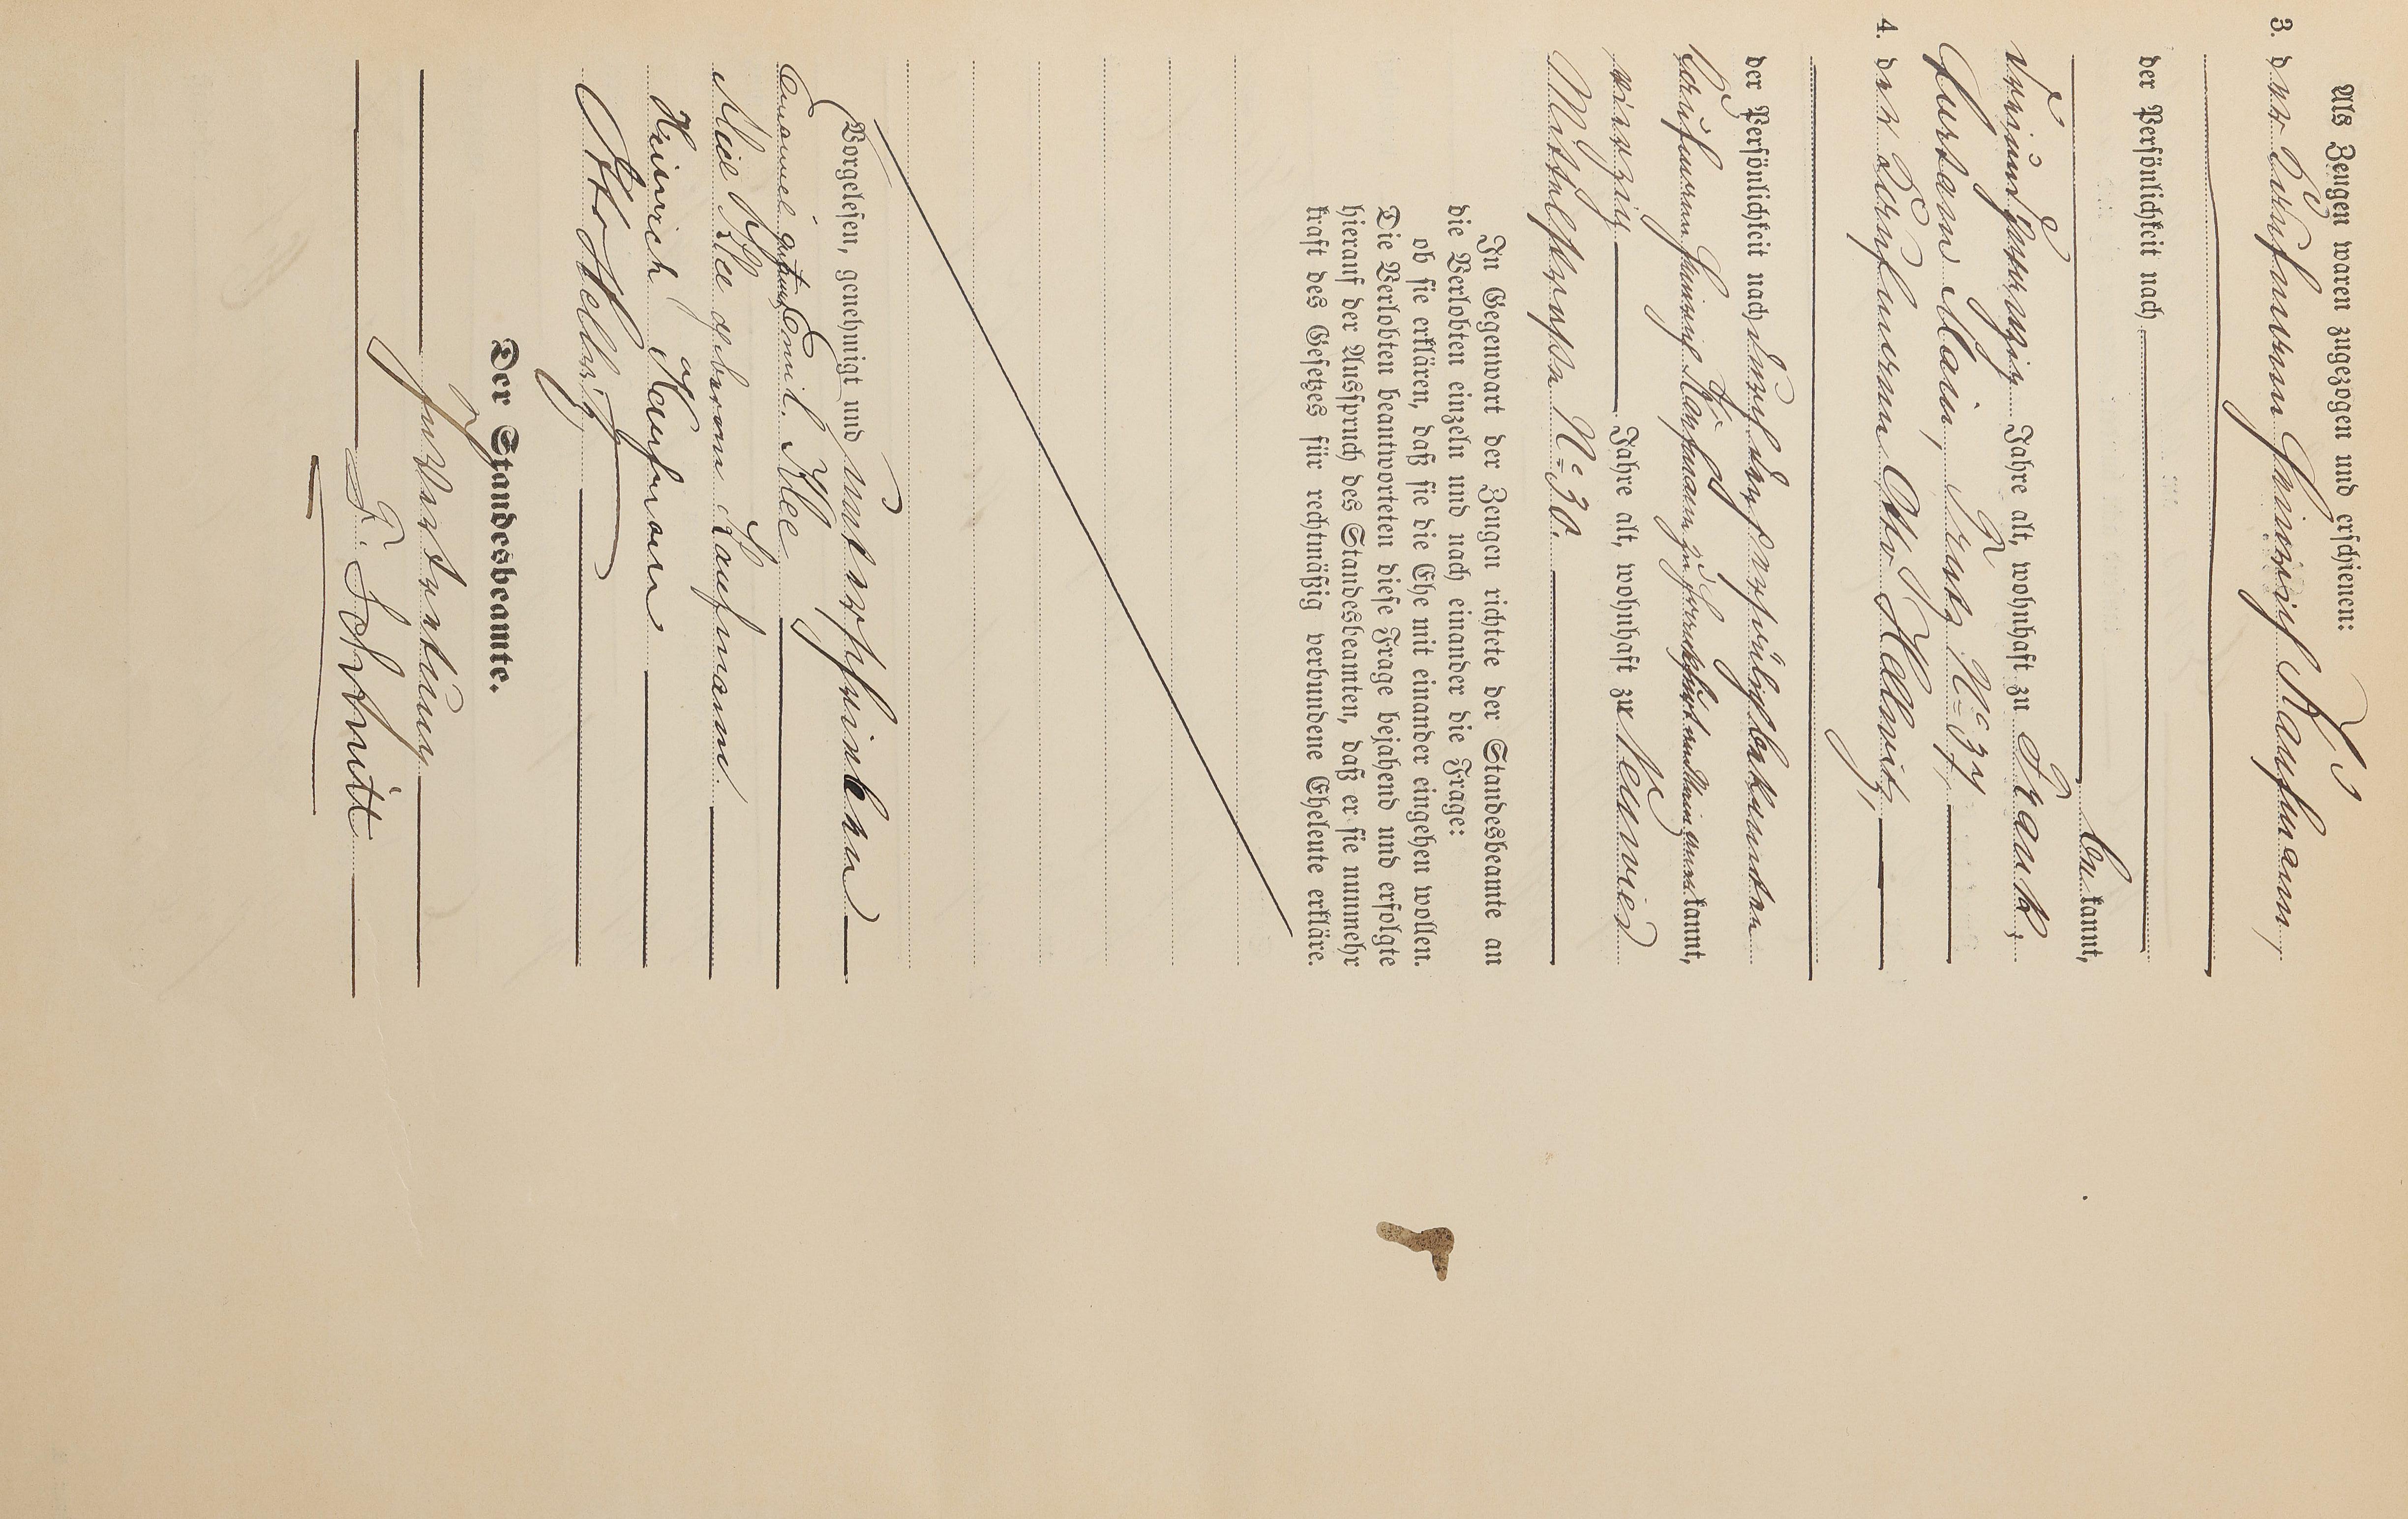 Als Zeugen waren zugezogen und erschienen:
3. der Kaufmann Heinrich Kaufmann,
der Persönlichkeit nach
bekannt,
Jahre alt, wohnhaft zu Frank,
furt am Main, N<sup>o</sup> 37,
4. der Kaufmann Otto Hellwitz,
der Persönlichkeit nach durch den persönlich bekannten
Kaufmann Heinrich Kaufmann zu Frankfurt am Main anerkannt,
vierzig Jahre alt, wohnhaft zu Neuwied
Mittelstrasse N<sup>o</sup> 30.
In Gegenwart der Zeugen richtete der Standesbeamte an
die Verlobten einzeln und nach einander die Frage:
ob sie erklären, daß sie die Ehe mit einander eingehen wollen.
Die Verlobten beantworteten diese Frage bejahend und erfolgte
hierauf der Ausspruch des Standesbeamten, daß er sie nunmehr
kraft des Gesetzes für rechtmäßig verbundene Eheleute erkläre.
Vorgelesen, genehmigt und unterschrieben
Emanuel genannt Emil Klee
Klee geborene Kaufmann.
Heinrich Kaufmann
Otto Hellwitz,
Der Standesbeamte.
In Vertretung
F. Schmitt